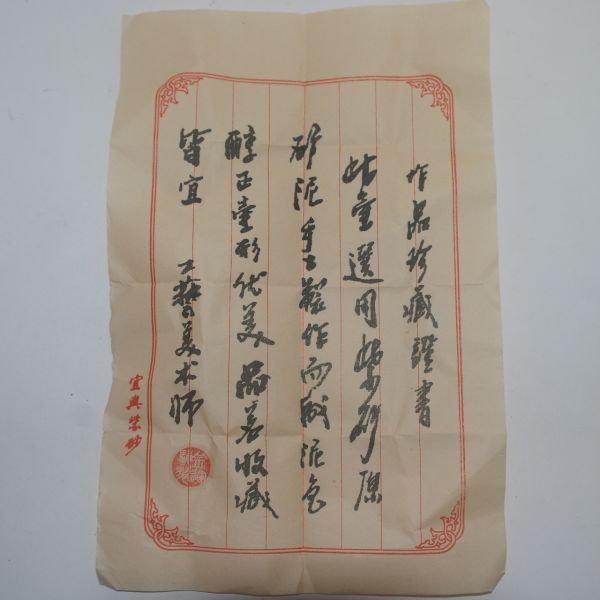 作品珍藏證書
此壺選用紫砂原
砂泥手工製作而成泥色
醇正壺形优美品茗收藏
皆宜
工藝美术师
宜興紫砂